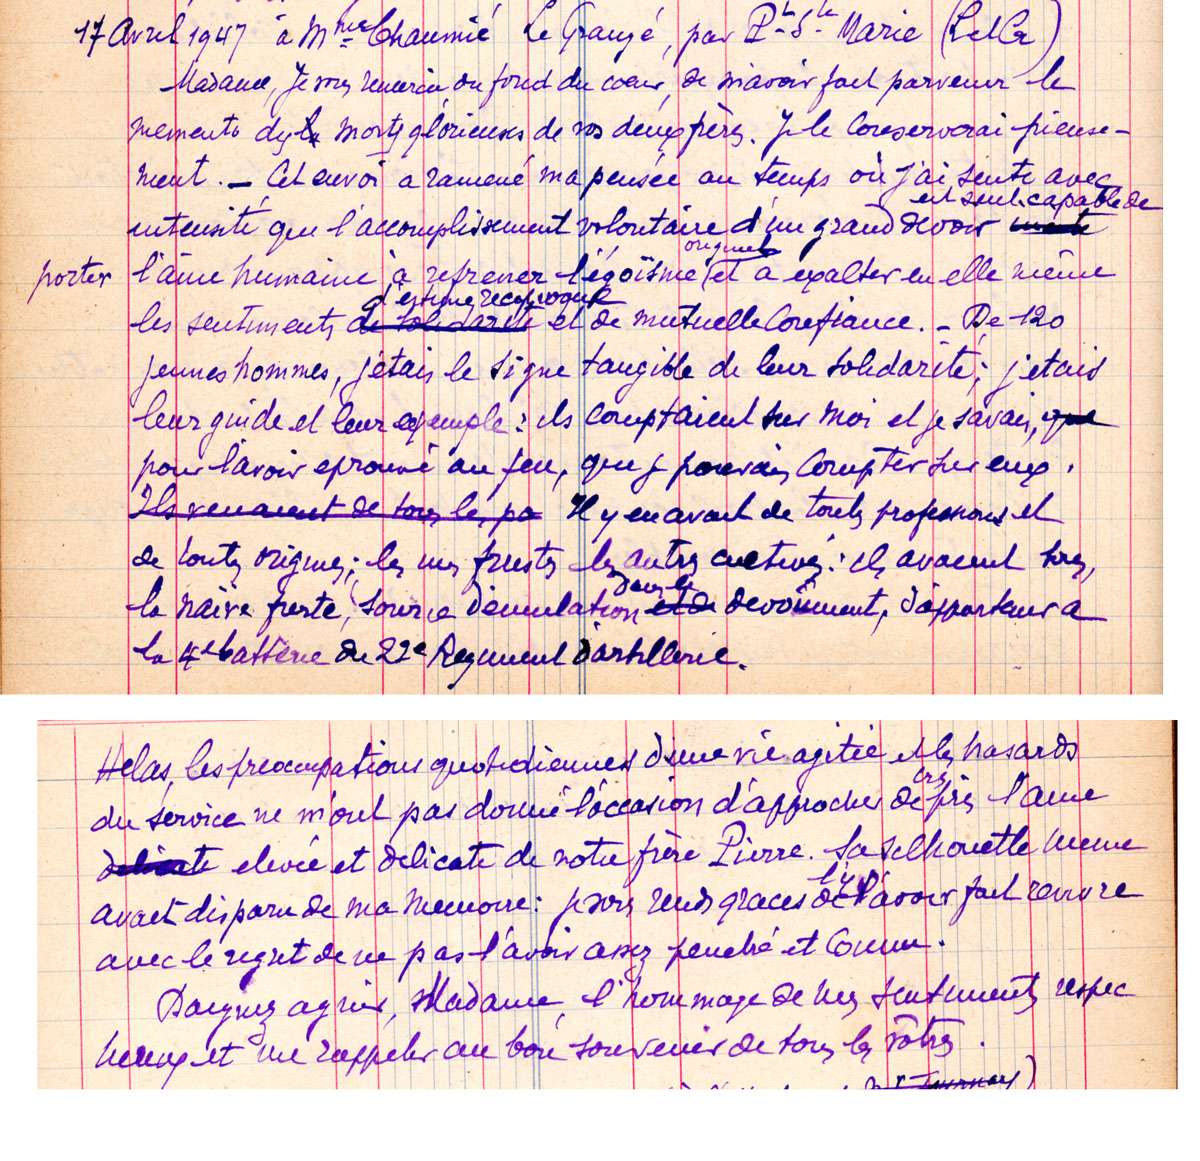 17 Avril 1947 à Mme Chaumié Le Grangé, par Pt-St-Marie (L et Ga)
Madame, Je vous remercie du fond du cœur, de m'avoir fait parvenir le
memento des morts glorieuses de vos deux frères. Je le conserverai pieuse-
ment. — Cet envoi a ramené ma pensée au temps où j'ai senti avec
est seul capable de
intensité que l'accomplissement volontaire d'un grand devoir
originel
porter l'âme humaine, à refrener l'égoïsme et à exalter en elle même
d'estime réciproque
les sentiments de solidarité et de mutuelle confiance. — De 120
jeunes hommes, j'étais le signe tangible de leur solidarité; j'étais
leur guide et leur exemple: ils comptaient sur moi et je savais, que
pour l'avoir eprouvé au feu, que je pouvais compter sur eux.
Ils venaient de tous les pa Il y en avait de toutes professions et
de toutes origines; les uns frustes les autres cultivés: ils avaient tous,
dans le
la naïve fierté, source d'émulation et de devoûment, d'appartenir a
la 4e batterie du 22e Regiment d'artillerie.
Helas, les préoccupations quotidiennes d'une vie agitée et les hasards
du service ne m'ont pas donné l'occasion d'approcher de près l'ame
delicate elevée et delicate de votre frère Pierre. Sa silhouette meme
avait disparu de ma memoire: je vous rends graces de l'avoir fait revivre
avec le regret de ne pas l'avoir assez penetré et connu.
Daignez agréer, Madame, l'hommage de mes sentiments respec
tueux et me rappeler au bon souvenir de tous les vôtres.